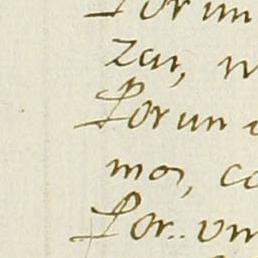 Por un
zar, n
Por un a
mos, co
Por. vn